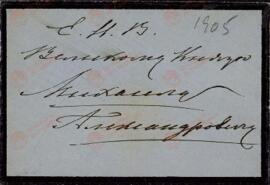 Е. И. В. 1905
Великому Князю
Михаилу
Александровичу